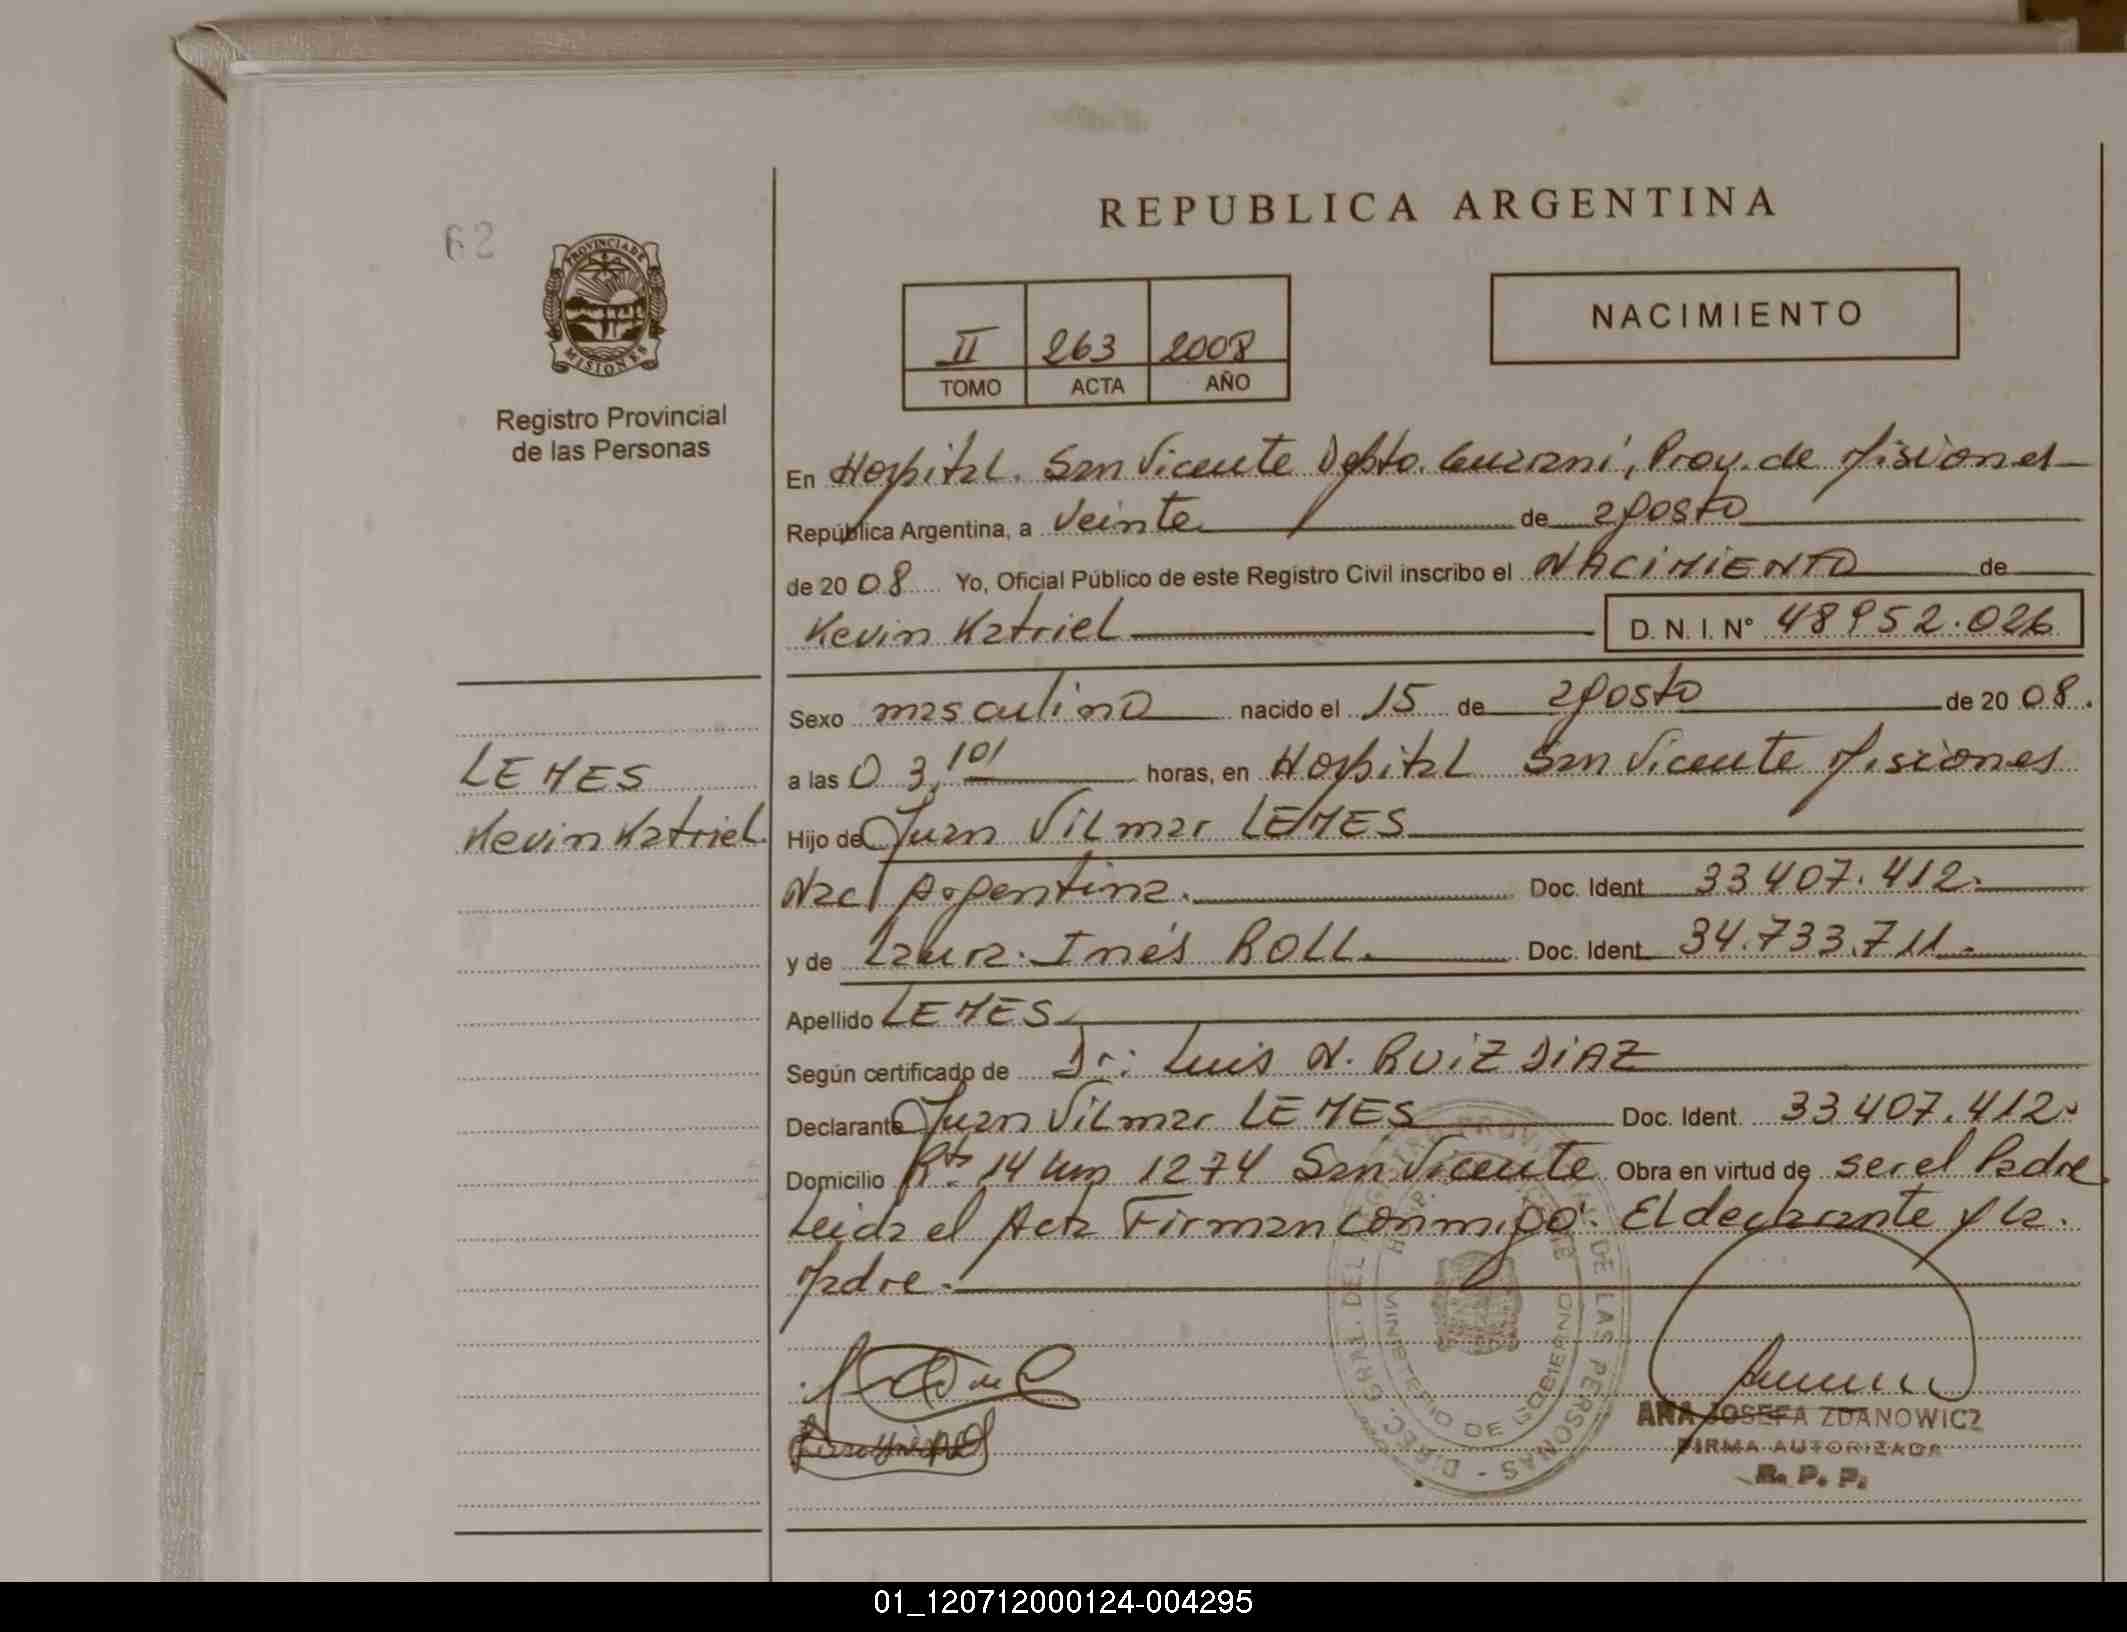 REPUBLICA ARGENTINA
62
PROVINCIA DE
MISIONES
Registro Provincial
de las Personas
II 263 2008
TOMO ACTA AÑO
NACIMIENTO
En Hospital. San Vicente Dpto. Guaraní, Prov. de Misiones
República Argentina, a Veinte de agosto
de 2008 Yo, Oficial Público de este Registro Civil inscribo el NACIMIENTO de
Kevin Katriel D. N. I. N° 48952.026
Sexo masculino nacido el 15 de agosto de 2008.
a las 03,10' horas, en Hospital San Vicente Misiones
LEMES
Kevin Katriel.
Hijo de Juan Vilmar LEMES
Nac/ Argentina. Doc. Ident. 33407.412.
y de Laura. Inés ROLL. Doc. Ident. 34.733.711.
Apellido LEMES
Según certificado de Dr: Luis N. RUIZ DIAZ
Declarante Juan Vilmar LEMES Doc. Ident. 33407.412.
Domicilio Rta. 14 km 1274 San Vicente Obra en virtud de ser el Padre
Leida el Acta Firman conmigo: El declarante y la
Madre.
DIREC. GRAL. DEL REGISTRO PROVINCIAL DE LAS PERSONAS
MINISTERIO DE GOBIERNO
ANA JOSEFA ZDANOWICZ
FIRMA AUTORIZADA
R. P. P.
01_120712000124-004295